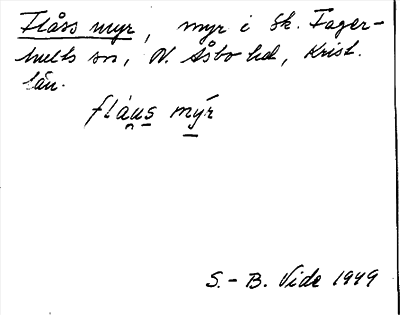 Flåss myr, myr i Sk. Fager-
hults sn, N. Åsbo hd, Krist.
län.
fláu̯s mýr
S.-B. Vide 1949